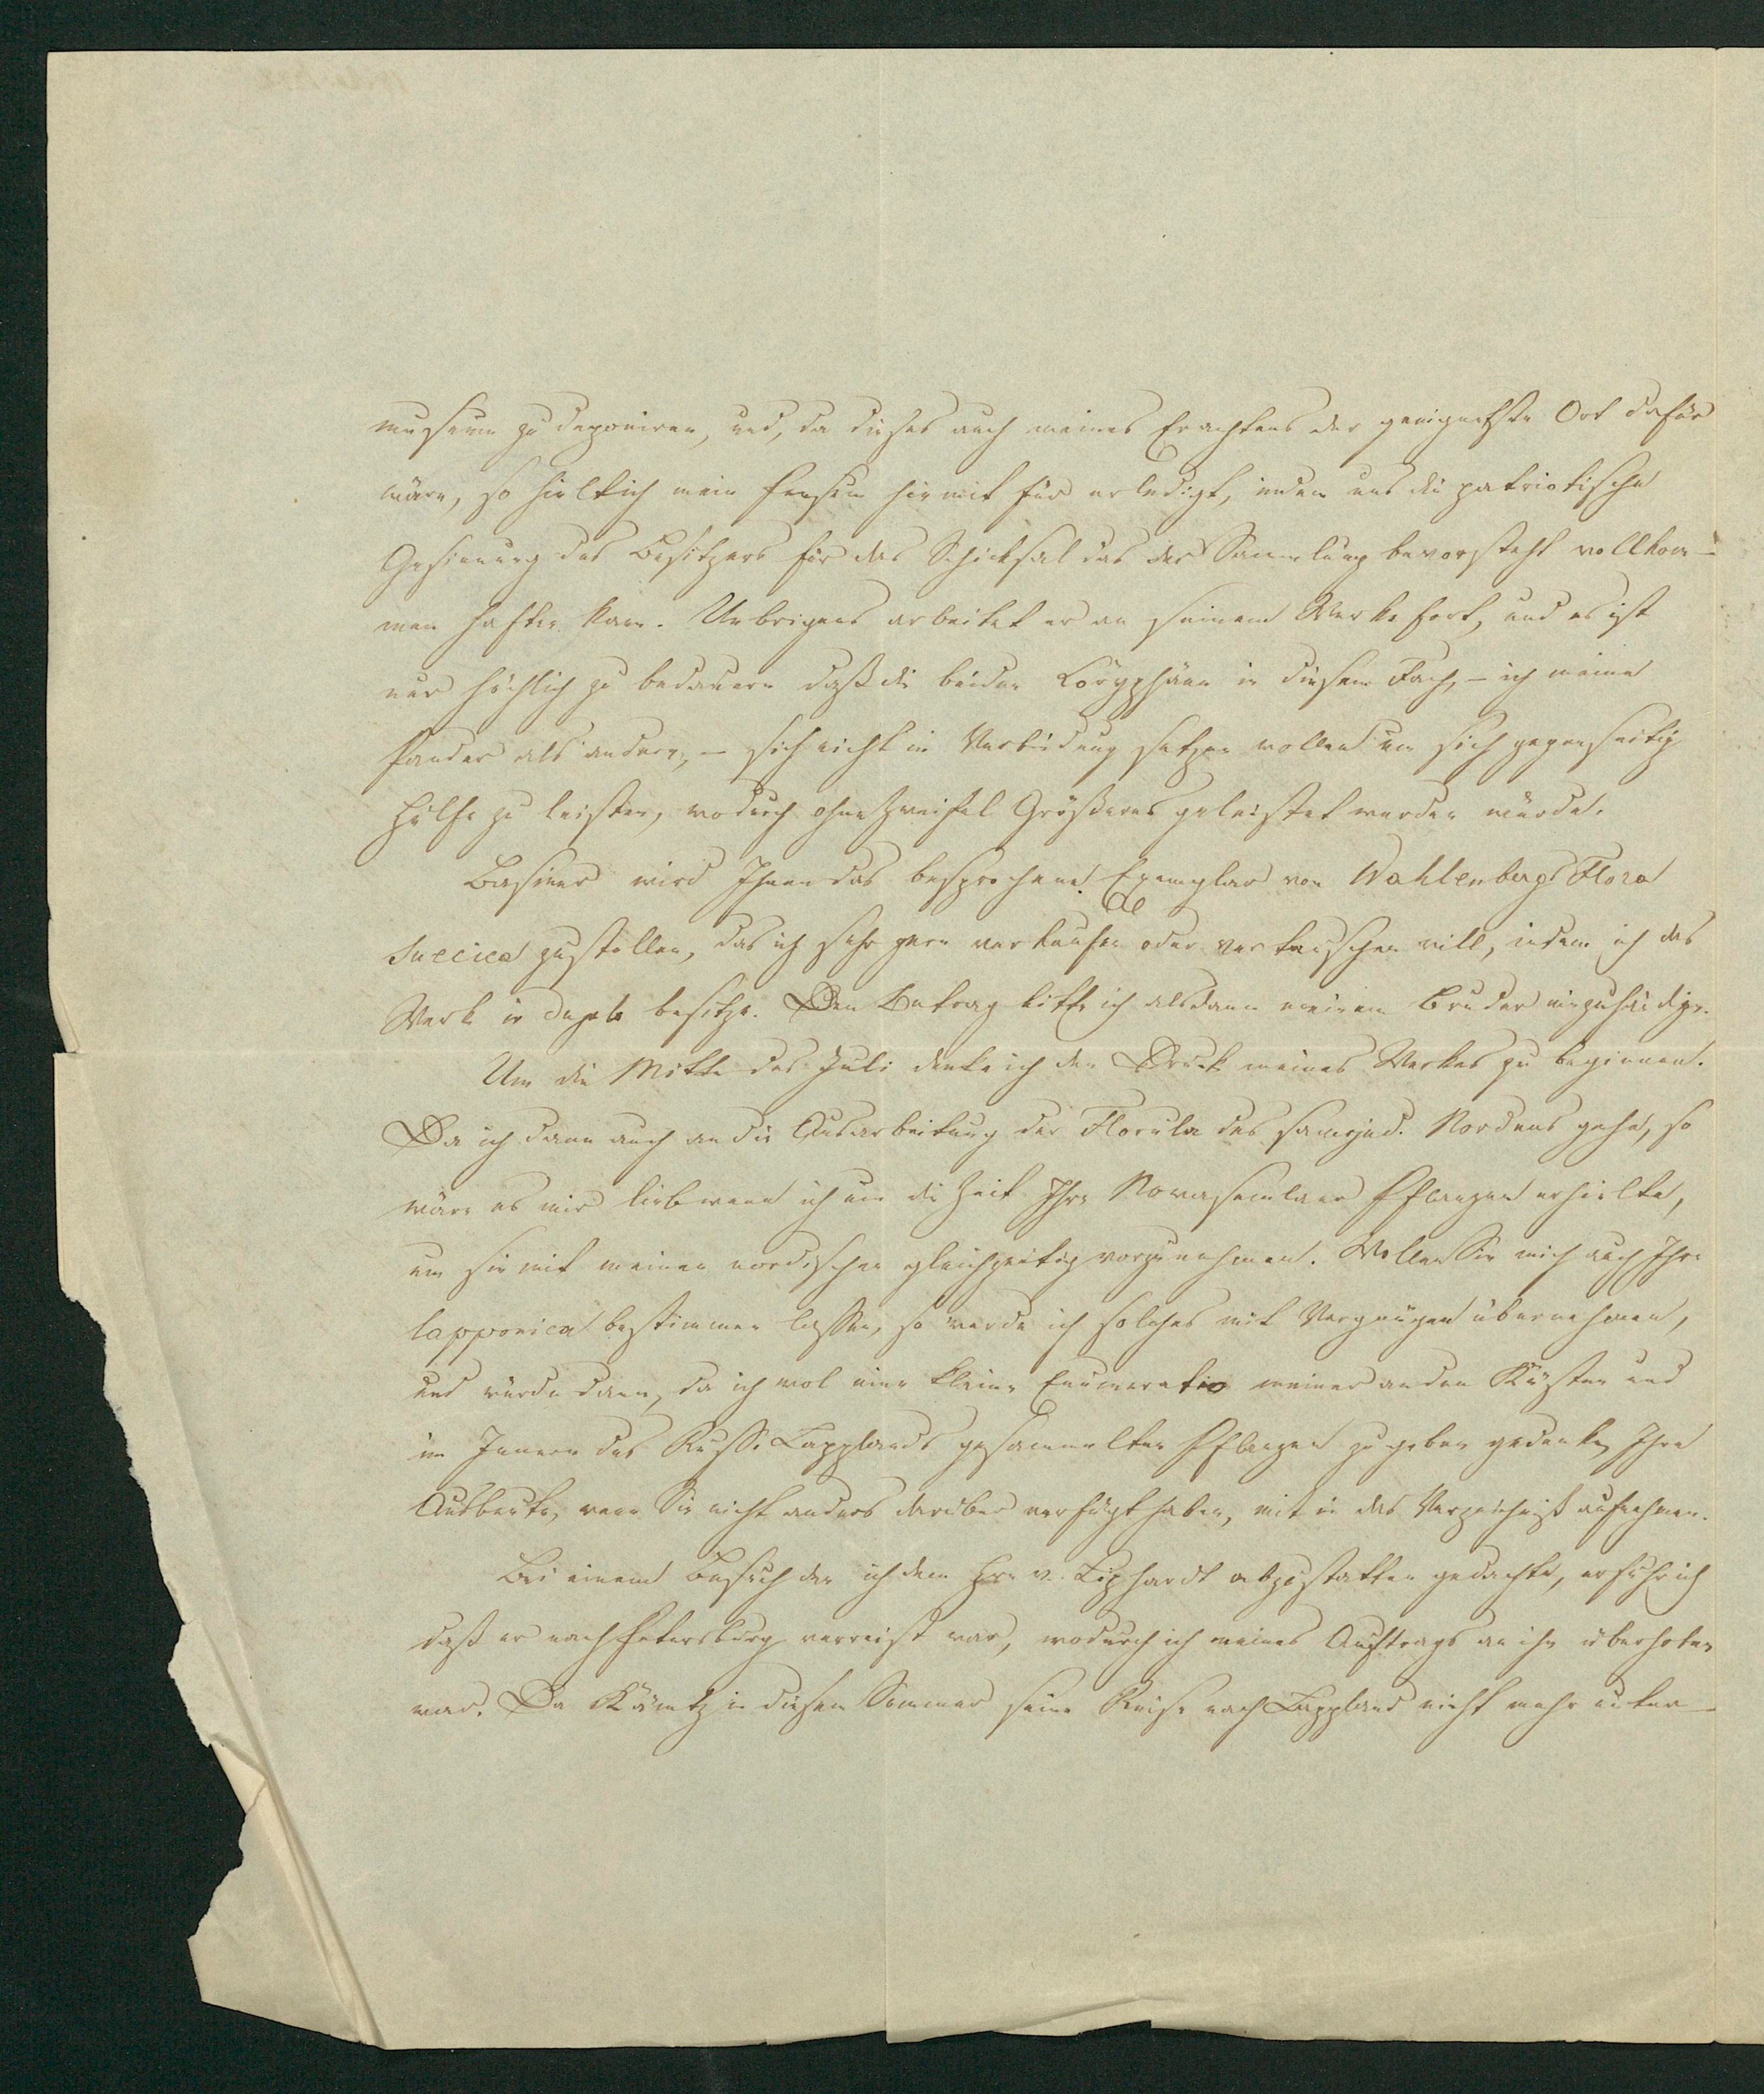 museum zu deponiren, und, da dieses auch meines Erachtens der geeignetste Ort dafür
wäre, so hielt ich mein Pensum hiermit für erledigt, indem uns die patriotische
Gesinnung des Besitzers für das Schicksal das der Sammlung bevorsteht vollkom-
men haften kann. Uebrigens arbeitet er an seinem Werke fort, und es ist
nur höchlich zu bedauern daß die beiden Coryphäen in diesem Fach, – ich meine
Pander als andern, – sich nicht in Verbindung setzen wollen um sich gegenseitig
Hülfe zu leisten, wodurch ohne Zweifel Größeres geleistet werden würde.
Basiner wird Ihnen das besprochene Exemplar von Wahlenbergs Flora
Suecica zustellen, das ich sehr gern verkaufen oder vertauschen will, indem ich das
Werk in duplo besitze. Den Betrag bitte ich alsdann meinem Bruder einzuhändigen.
Um die Mitte des Juli denke ich den Druck meines Werkes zu beginnen.
Da ich dann auch an die Ausarbeitung der Florula des samojed. Nordens gehe, so
wäre es mir lieb wenn ich um die Zeit Ihre Novasemlaer Pflanzen erhielte,
um sie mit meinen nordischen gleichzeitig vorzunehmen. Wollen Sie mich auch Ihre
lapponica bestimmen lassen, so werde ich solches mit Vergnügen übernehmen,
und würde dann, da ich wol eine kleine Enumeratio meiner an den Küsten und
im Innern des Russ. Lapplands gesammelten Pflanzen zu geben gedenke, Ihre
Ausbeute, wenn Sie nicht anders darüber verfügt haben, mit in das Verzeichniß aufnehmen.
Bei einem Besuch den ich dem Hrn v. Liphardt abzustatten gedachte, erfuhr ich
daß er nach Petersburg verreist war, wodurch ich meines Auftrags an ihn überhoben
war. Da Kämtz in diesem Sommer seine Reise nach Lappland nicht mehr unter-